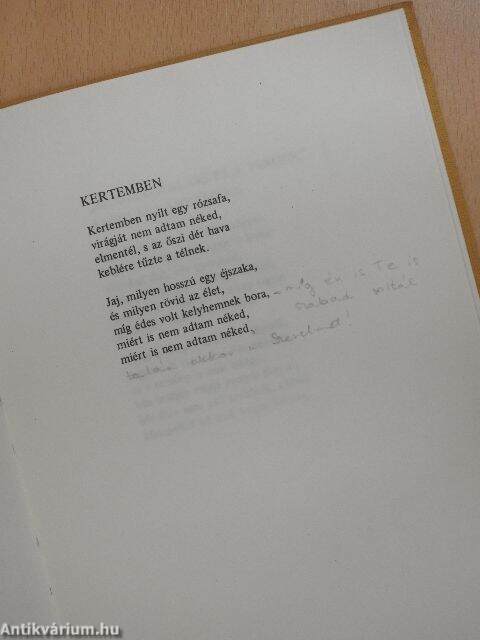 KERTEMBEN
Kertemben nyílt egy rózsafa,
virágját nem adtam néked,
elmentél, s az őszi dér hava
keblére tűzte a télnek.
Jaj, milyen hosszú egy éjszaka,
és milyen rövid az élet,
míg édes volt kelyhemnek bora, – míg én is Te is
miért is nem adtam néked, szabad voltál
miért is nem adtam néked,
talán akkor a Szerelmed!
Antikvárium.hu